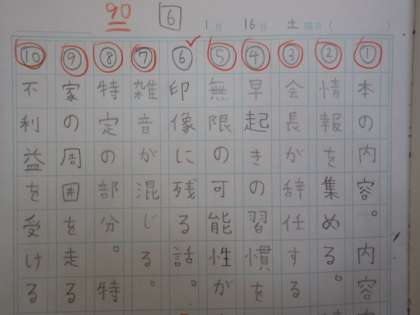 90
6
1月16日 土曜日( )
① 本の内容。内容
② 情報を集める。
③ 会長が辞任する
④ 早起きの習慣を
⑤ 無限の可能性が
⑥ 印像に残る話。
⑦ 雑音が混じる。
⑧ 特定の部分。特
⑨ 家の周囲を走る
⑩ 不利益を受ける